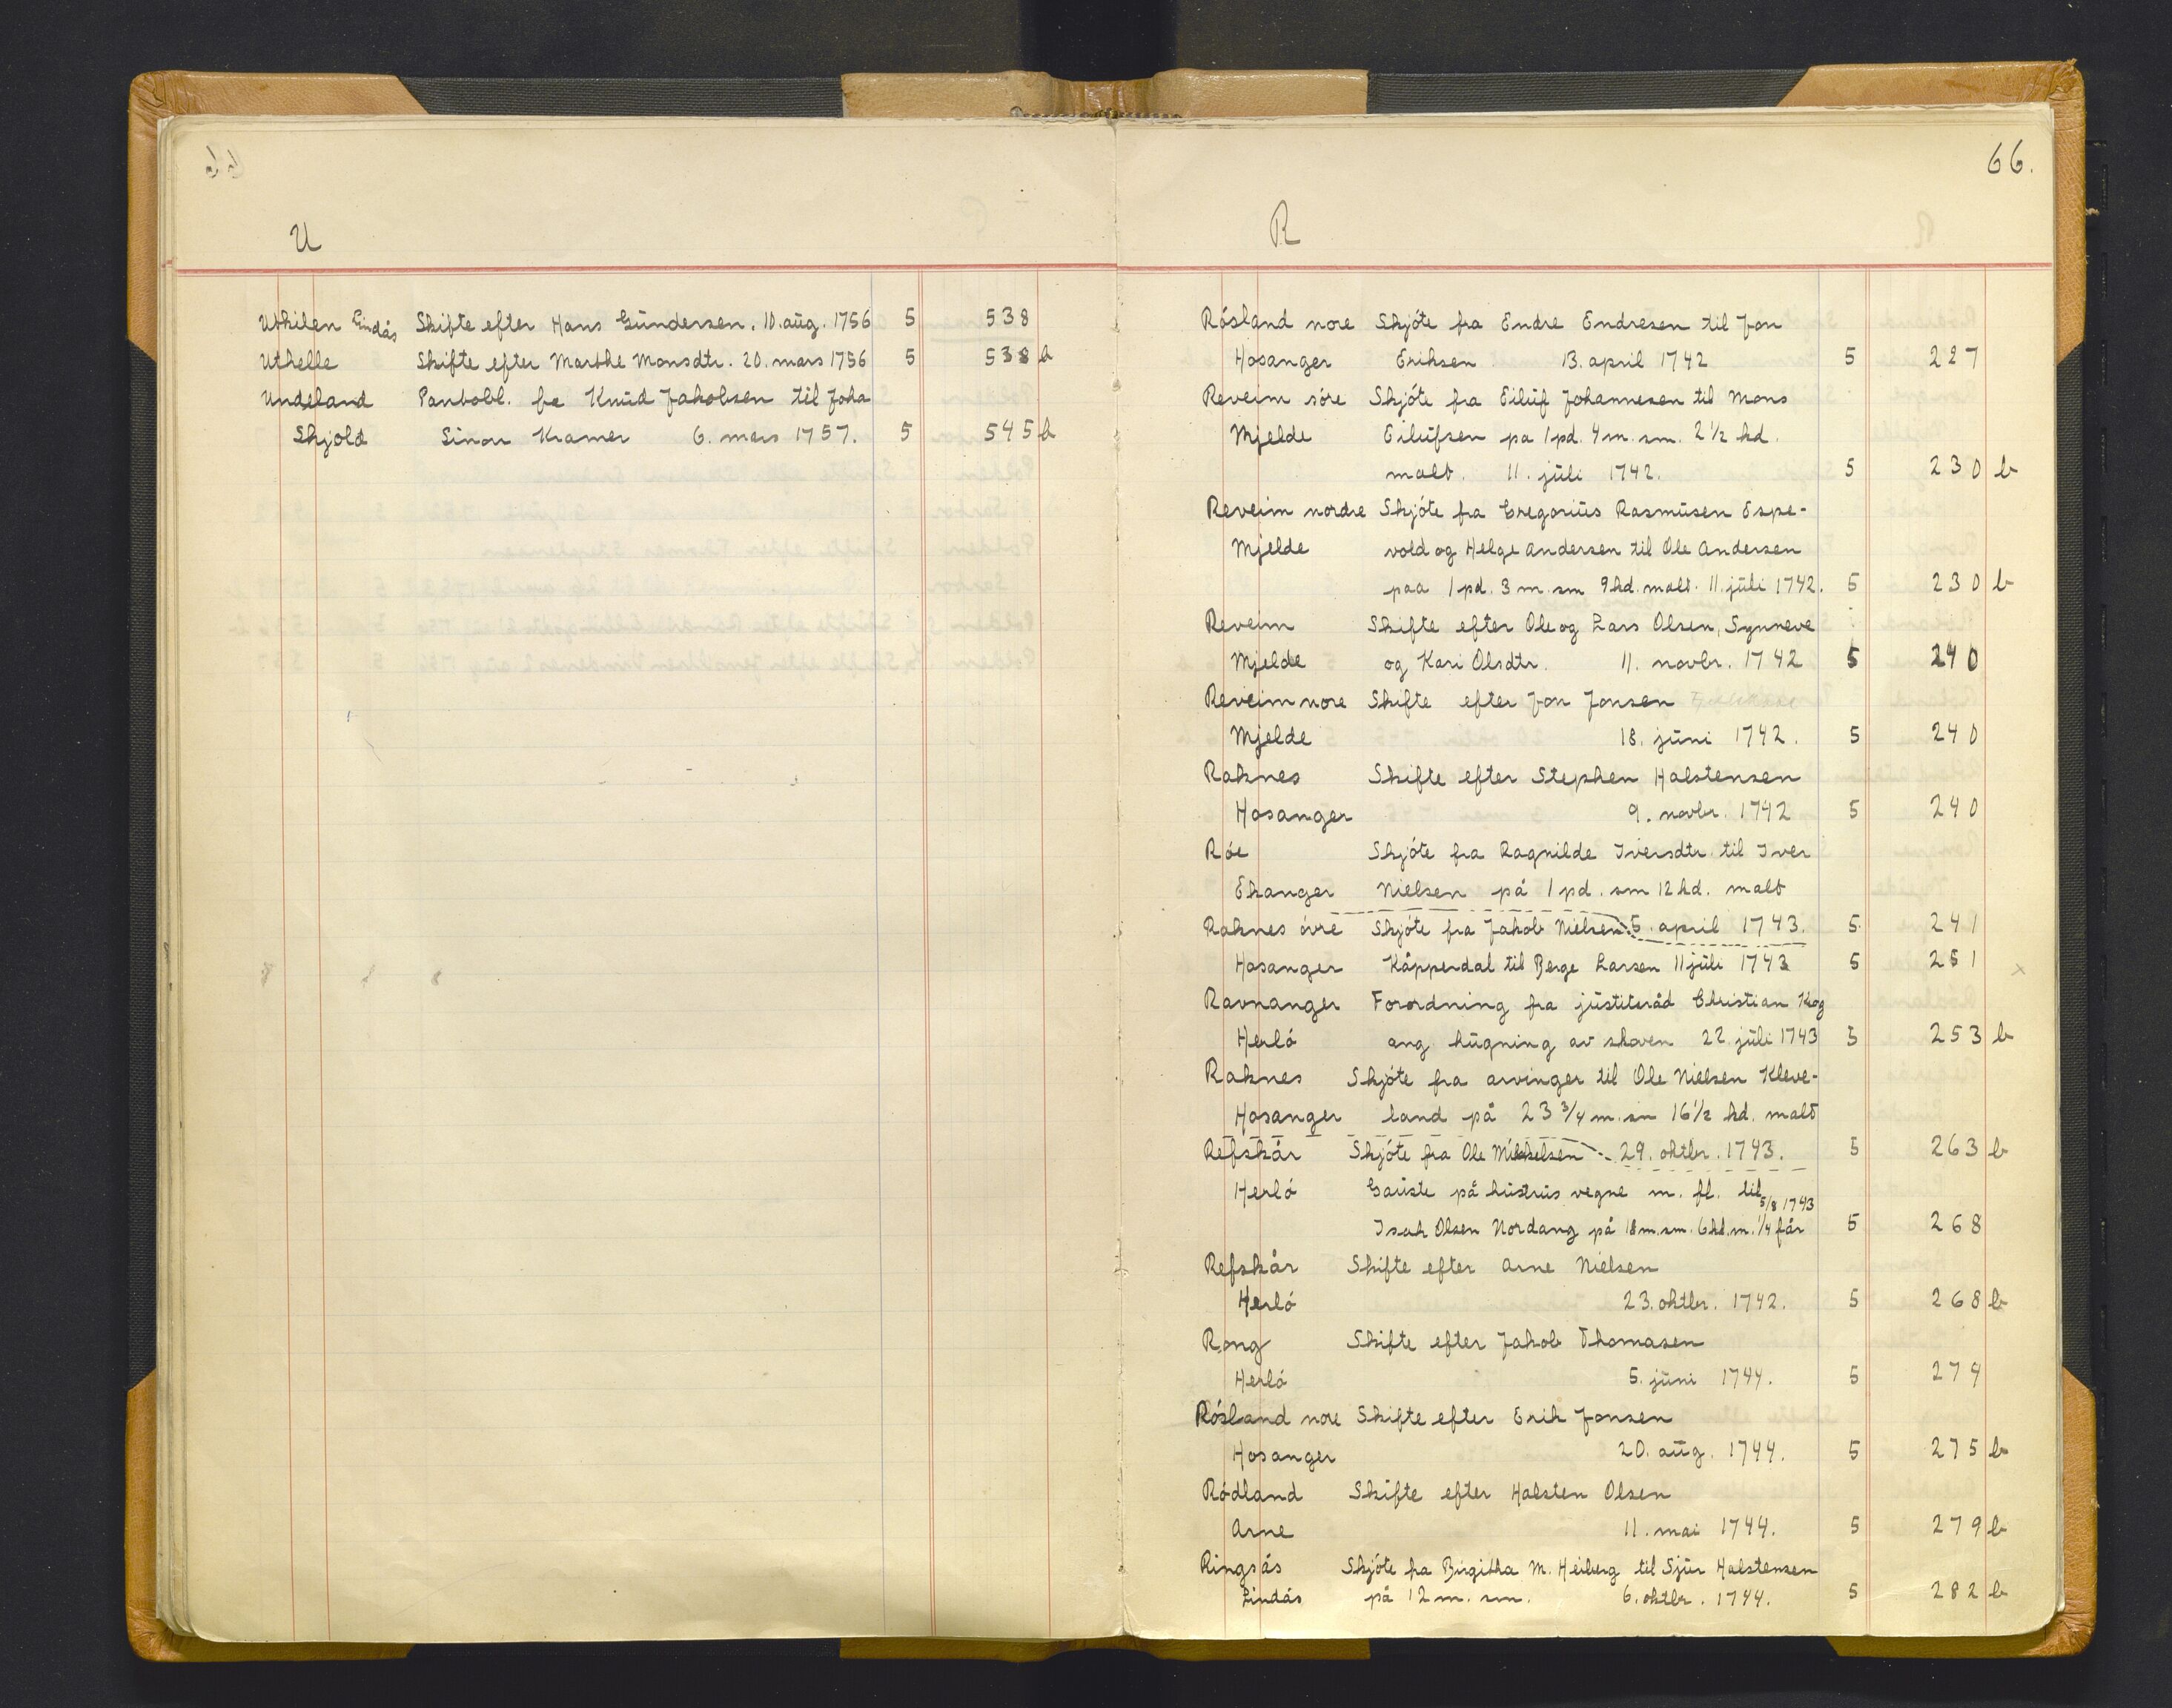 U
Utkilen Lindås Skifte efter Hans Gundersen. 10. aug. 1756 5 538
Uthelle Skifte efter Marthe Monsdtr. 20. mars 1756 5 538 b
Undeland Pantobl. fra Knud Jakobsen til Joha
Skjold Kramer 6. mars 1757. 5 545 b
66.
R
Rósland nore Skjóte fra Endre Endresen til Jon
Hosanger Eriksen 13. april 1742 5 227
Reveim sóre Skjóte fra Eiluf Johannesen til Mons
Mjelde Eilufsen pa 1 pd. 4 m. sm. 2 1/2 hd.
malt. 11. juli 1742. 5 230 b
Reveim nordre Skjóte fra Gregorius Rasmusen Espe-
Mjelde vold og Helge Andersen til Ole Andersen
paa 1 pd. 3 m. sm 9 hd. malt. 11. juli 1742. 5 230 b
Reveim Skifte efter Ole og Lars Olsen, Synneve
Mjelde og Kari Olsdtr. 11. novbr. 1742 5 240
Reveim nore Skifte efter Jon Jonsen
Mjelde 18. juni 1742. 5 240
Raknes Skifte efter Stephen Halstensen
Hosanger 9. novbr. 1742 5 240
Róe Skjóte fra Ragnilde Iversdtr. til Iver
Ekanger Nielsen på 1 pd. sm 12 hd. malt
Raknes óvre Skjóte fra Jakob Nielsen 5. april 1743. 5 241
Hosanger Kåpperdal til Berge Larsen 11 juli 1743 5 251 x
Ravnanger Forordning fra justiteråd Christian Krog
Herló ang. hugning av skoven 22. juli 1743 5 253 b
Raknes Skjóte fra arvinger til Ole Nielsen Kleve-
Hosanger land på 23 3/4 m. sm 16 1/2 hd. malt
Refskår Skjóte fra Ole Mickelsen 29. oktbr. 1743. 5 263 b
Herló Gauste på hustrus vegne m. fl. til 5/8 1743
Isak Olsen Nordang på 18 m. sm. 6 hd. m. 1/4 får 5 268
Refskår Skifte efter Arne Nielsen
Herló 23. oktbr. 1742. 5 268 b
Rong Skifte efter Jakob Thomasen
Herló 5. juni 1744. 5 274
Rósland nore Skifte efter Erik Jonsen
Hosanger 20. aug. 1744. 5 275 b
Ródland Skifte efter Halsten Olsen
Arne 11. mai 1744. 5 279 b
Ringsås Skjóte fra Birgitha M. Heiberg til Sjur Halstensen
Lindås på 12 m. sm. 6. oktbr. 1744. 5 282 b